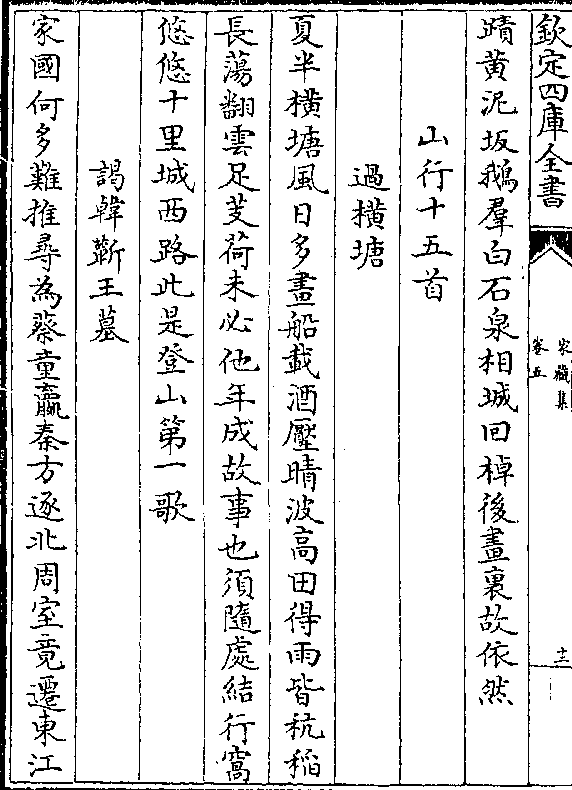 欽定四庫全書
家藏集
卷五
十二
蹟黄泥坂鵝羣白石泉相城回棹後畫裏故依然
山行十五首
過横塘
夏半横塘風日多畫船載酒壓晴波髙田得雨皆秔稻
長蕩翻雲足芰荷未必他年成故事也須隨處結行窩
悠悠十里城西路此是登山第一歌
謁韓蘄王墓
家國何多難推尋為蔡童嬴秦方逐北周室竟遷東江